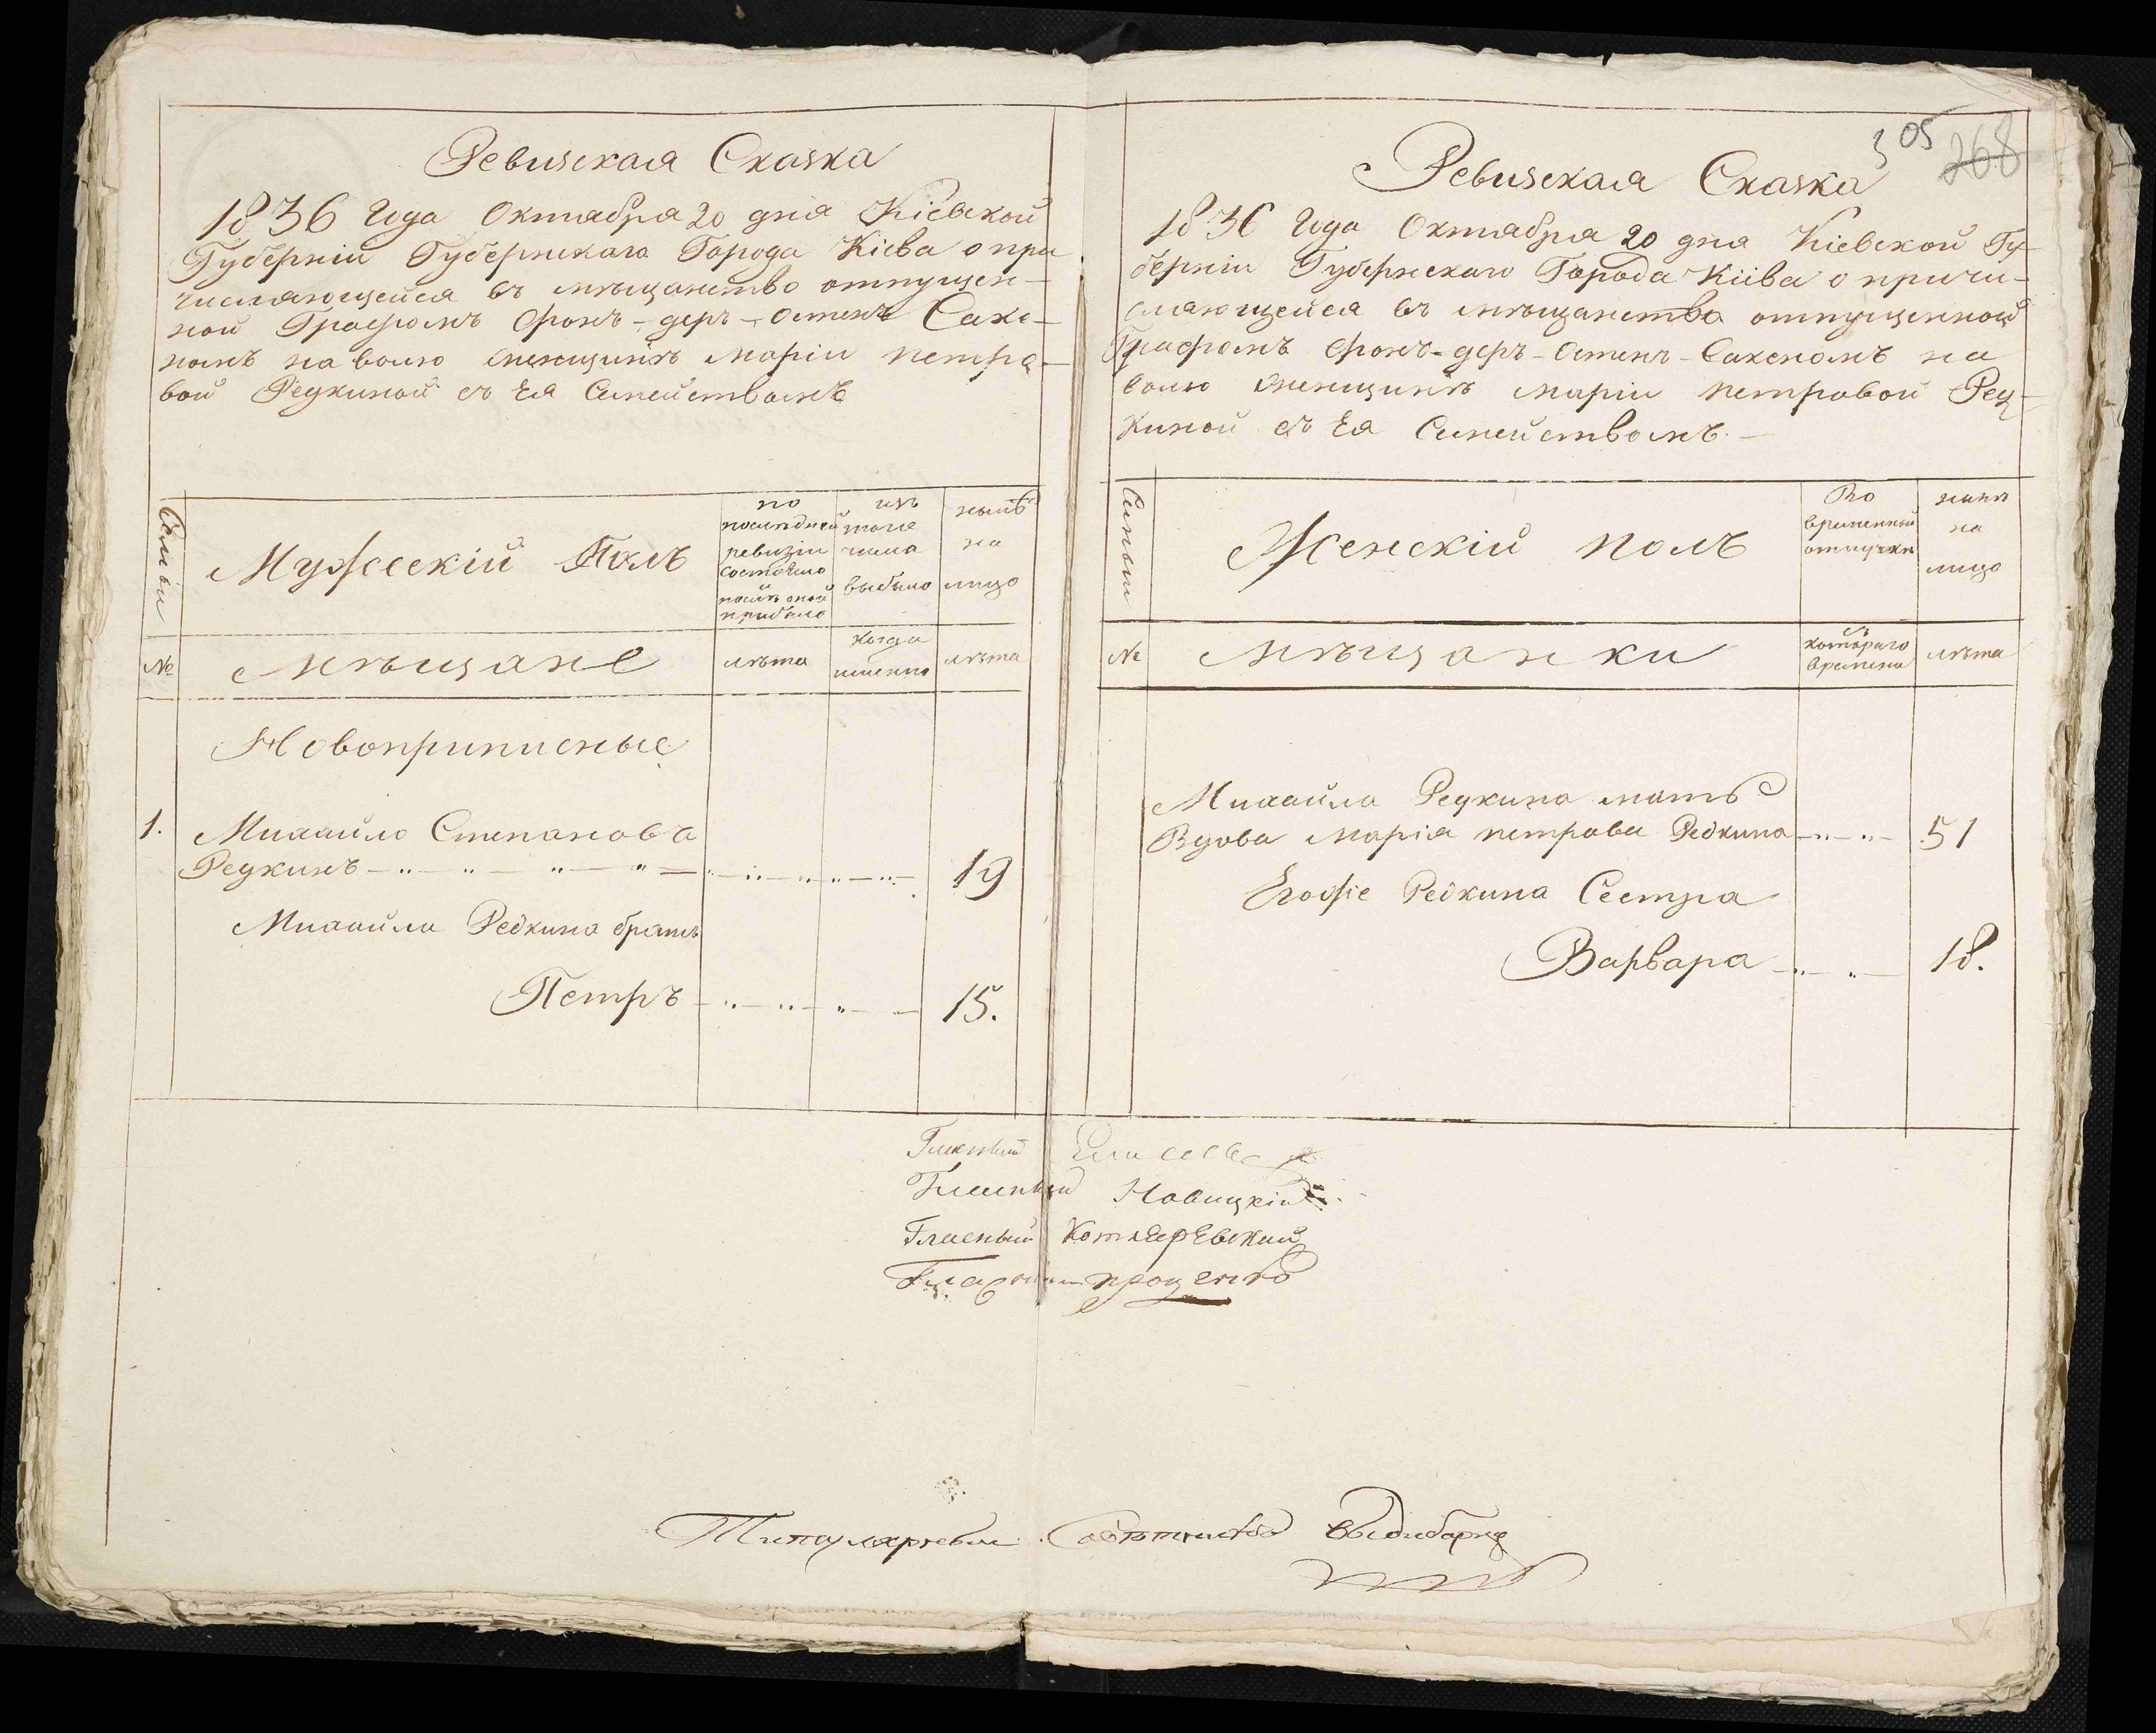 Ревизская Сказка
1836 Года Октября 20 дня Кіевской
Губерніи Губернскаго Города Кіева о при
числяющейся въ мѣщанство отпущен-
ной Графомъ фонъ-деръ-Остенъ Саке-
номъ на волю женщинѣ Маріи Петро-
вой Редкиной съ Ея Семействомъ
Семьи
Мужескій Полъ
по
последней
ревизіи
состояло
и
послѣ оной
прибыло
изъ
того
числа
выбыло
нынѣ
на
лицо
№
мѣщане
лѣта
когда
именно
лѣта
Новоприписные
1.
Михайло Степановъ
Редкинъ
19
Михайла Редкина братъ
Петръ
15.
305
268
Ревизская Сказка
1836 Года Октября 20 дня Кіевской Гу-
берніи Губернскаго Города Кіева о причи-
сляющейся въ мѣщанство отпущенной
Графомъ фонъ-деръ-Остенъ-Сакеномъ на
волю женщинѣ Маріи Петровой Ред-
киной съ Ея Семействомъ.
Семьи
Женскій полъ
Во
временной
отлучкѣ
нынѣ
на
лицо
№
мѣщанки
съ
котораго
времени
лѣта
Михайла Редкина мать
Вдова Марія Петрова Редкина
51
Егоже Редкина Сестра
Варвара
18.
Гласный
Гласный Новицкій
Гласный Котляревский
Гласный Проценко
Титулярный Совѣтникъ